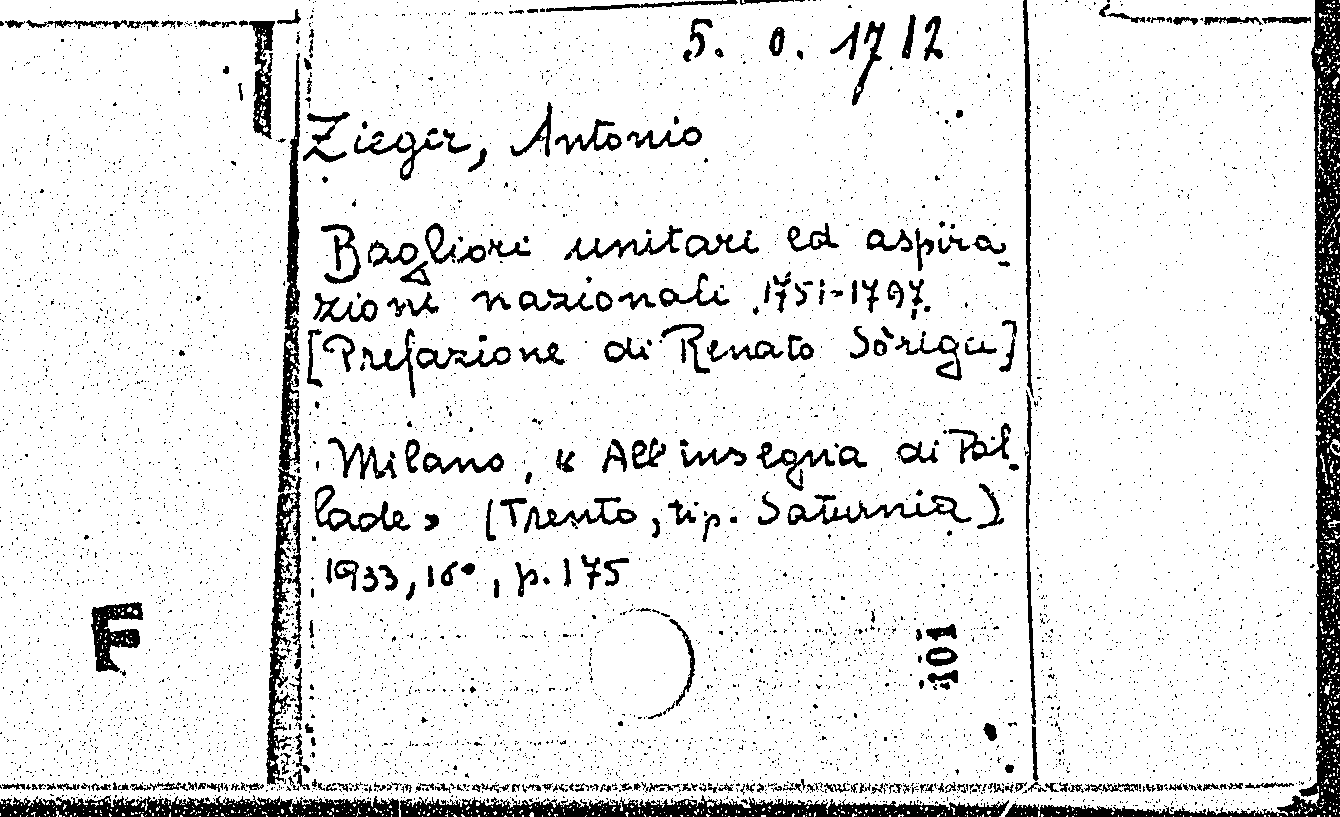 5. O. 1712
Zieger, Antonio
Bagliori unitari ed aspira-
zioni nazionali 1751-1797.
[Prefazione di Renato Sòriga]
Milano, « All'insegna di Pal-
lade » (Trento, tip. Saturnia)
1933, 16°, p. 175
F
101